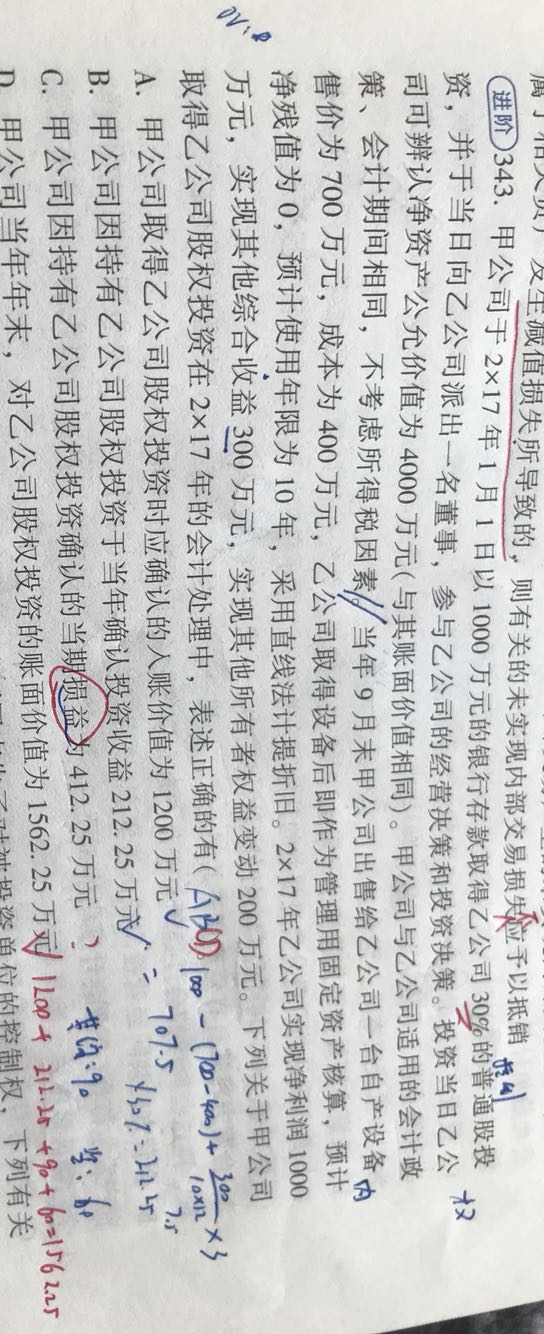 发生减值损失所导致的，则有关的未实现内部交易损失应予以抵销
进阶 343. 甲公司于 2×17 年 1 月 1 日以 1000 万元的银行存款取得乙公司 30% 的普通股投
资，并于当日向乙公司派出一名董事，参与乙公司的经营决策和投资决策。投资当日乙公
司可辨认净资产公允价值为 4000 万元(与其账面价值相同)。甲公司与乙公司适用的会计政
策、会计期间相同，不考虑所得税因素。当年 9 月末甲公司出售给乙公司一台自产设备 内
售价为 700 万元，成本为 400 万元，乙公司取得设备后即作为管理用固定资产核算，预计
净残值为 0，预计使用年限为 10 年，采用直线法计提折旧。2×17 年乙公司实现净利润 1000
万元，实现其他综合收益 300 万元，实现其他所有者权益变动 200 万元。下列关于甲公司
取得乙公司股权投资在 2×17 年的会计处理中，表述正确的有( ABCD
1000 - (700-400) + 300/10×12 ×3
7.5
A. 甲公司取得乙公司股权投资时应确认的入账价值为 1200 万元 ✓
= 707.5 ×30% = 212.25
B. 甲公司因持有乙公司股权投资于当年确认投资收益 212.25 万元 ✓
C. 甲公司因持有乙公司股权投资确认的当期损益为 412.25 万元
其综:90
D. 甲公司当年年末，对乙公司股权投资的账面价值为 1562.25 万元 ✓ 1200+212.25+90+60=1562.25
被投资单位的控制权，下列有关